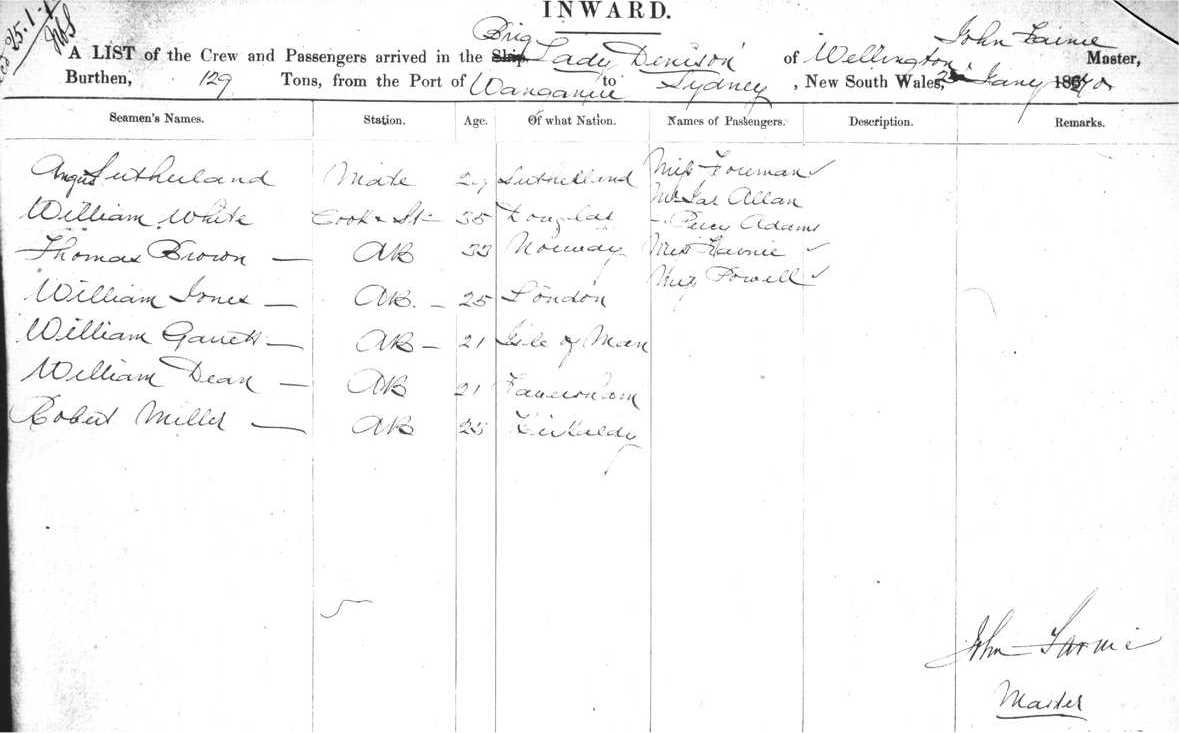 25.1.
INWARD.
Brig
A LIST of the Crew and Passengers arrived in the Ship Lady Denison of Wellington John Fairnie Master,
Burthen, 129 Tons, from the Port of Wanganui to Sydney, New South Wales, Jany 1870
Seamen's Names. Station. Age. Of what Nation. Names of Passengers. Description. Remarks.
Angus Sutherland Mate 29 Miss Foreman
Mr Jas Allan
William White Cook & St 35 Douglas
" Percy Adams
Thomas Brown — AB 33 Norway Miss Fairnie
Powell
William Jones — AB. — 25 London
William Garrett — AB — 21 Isle of Man
William Dean — AB 21
Robert Miller — AB 25 Kirkaldy
John Farnie
Master